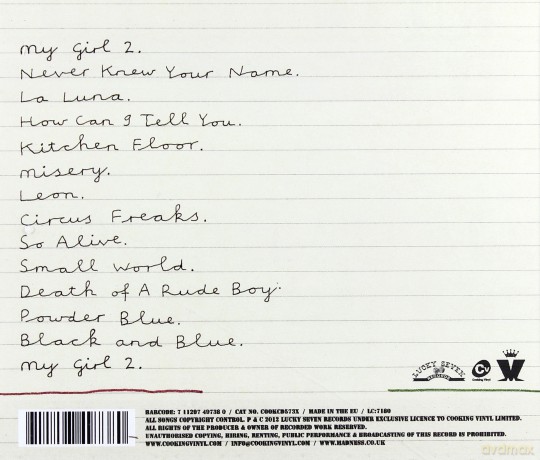 My Girl 2.
Never Knew Your Name.
La Luna.
How Can I Tell You.
Kitchen Floor.
Misery.
Leon.
Circus Freaks.
So Alive.
Small World.
Death of A Rude Boy.
Powder Blue.
Black and Blue.
My Girl 2.
LUCKY SEVEN
RECORDS
CV
Cooking Vinyl
M
BARCODE: 7 11297 49738 0 / CAT NO. COOKCD573X / MADE IN THE EU / LC:7180
ALL SONGS COPYRIGHT CONTROL. P & C 2012 LUCKY SEVEN RECORDS UNDER EXCLUSIVE LICENCE TO COOKING VINYL LIMITED.
ALL RIGHTS OF THE PRODUCER & OWNER OF RECORDED WORK RESERVED.
UNAUTHORISED COPYING, HIRING, RENTING, PUBLIC PERFORMANCE & BROADCASTING OF THIS RECORD IS PROHIBITED.
WWW.COOKINGVINYL.COM / INFO@COOKINGVINYL.COM / WWW.MADNESS.CO.UK
avdmax